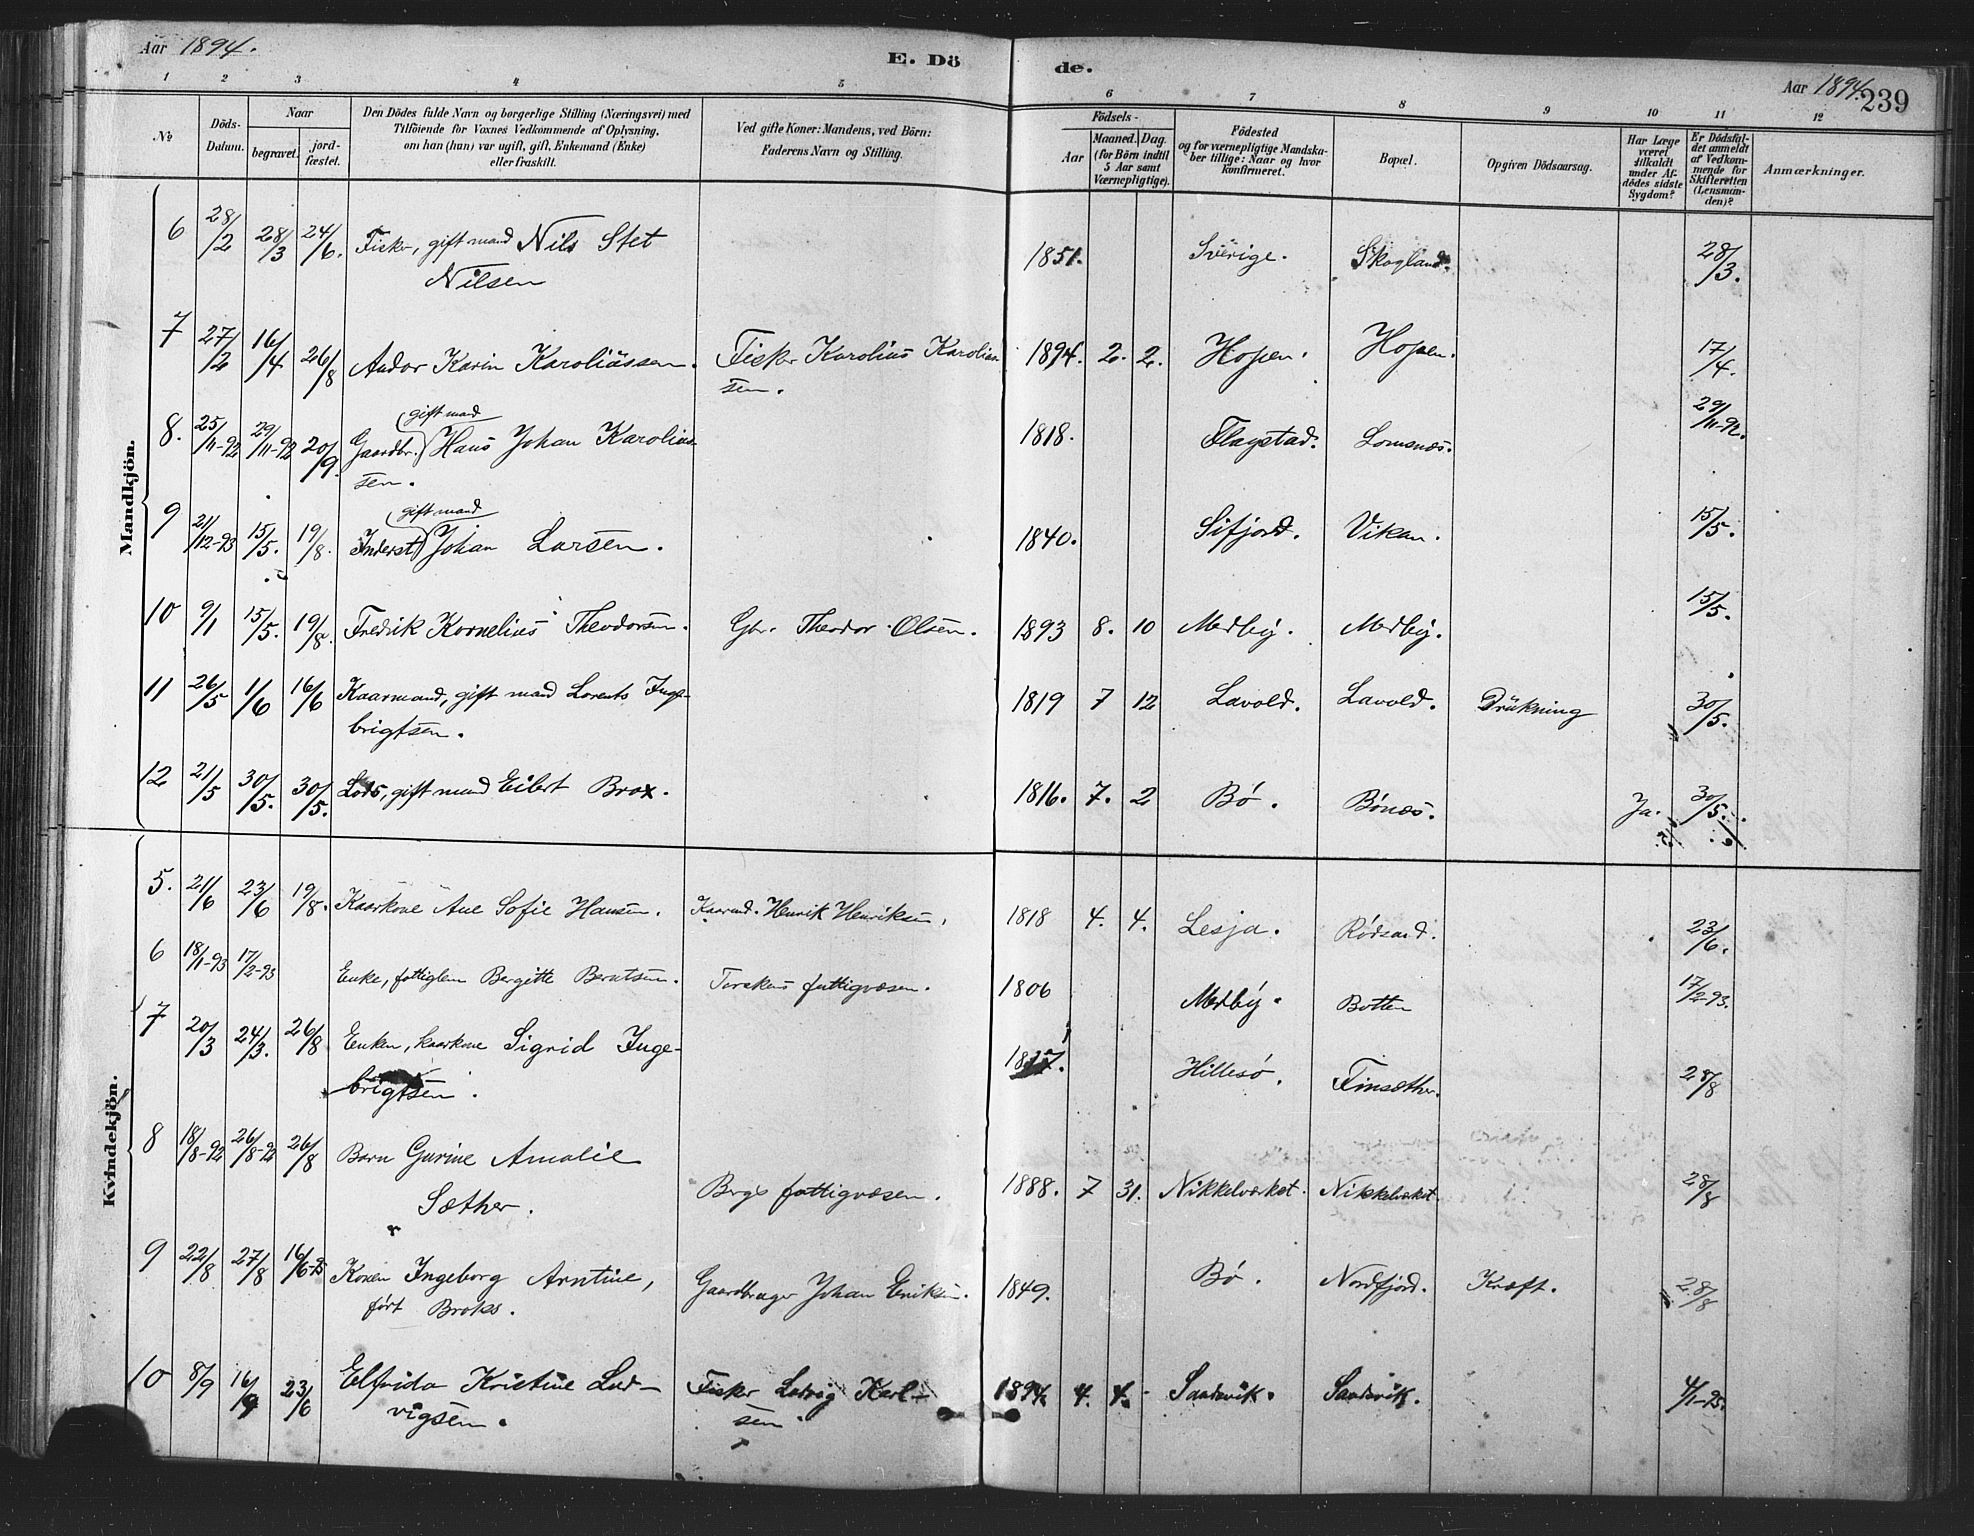 Aar 1894.
E. Dö
de.
Aar 1894.
239
1 2 3 4 5 6 7 8 9 10 11 12
№
Döds-
Datum.
Naar
begravet.
jord-
fæstet.
Den Dödes fulde Navn og borgerlige Stilling (Næringsvei) med
Tilföiende for Voxnes Vedkommende af Oplysning,
om han (hun) var ugift, gift, Enkemand (Enke)
eller fraskilt.
Ved gifte Koner: Mandens, ved Börn:
Faderens Navn og Stilling.
Födsels-
Aar
Maaned. Dag.
(for Börn indtil
5 Aar samt
Værnepligtige).
Födested
og for værnepligtige Mandska-
ber tillige: Naar og hvor
konfirmeret.
Bopæl.
Opgiven Dödsaarsag.
Har Læge
været
tilkaldt
under Af-
dödes sidste
Sygdom?
Er Dödsfal-
det anmeldt
af Vedkom-
mende for
Skifteretten
(Lensman-
den)?
Anmærkninger.
Mandkjön.
6 28/2 28/3 24/6. Fisker, gift mand Nils Stet 1851. Sverige. Skogland. 28/3.
Nilsen
7 27/2 16/4 26/8 Andor Karin Karoliussen. Fisker Karolius Karolius 1894. 2. 2. Hopen. Hopen. 17/4.
sen.
gift mand
8. 25/11-92 29/11-92 20/9 Gaardbr. Hans Johan Karolius 1818. Flagstad. Lomsnæs. 29/11-92.
sen.
gift mand
9 21/12-93 15/5. 19/8. Inderst Johan Larsen. 1840. Sifjord. Vikan. 15/5.
10 9/1 15/5. 19/8. Fredrik Kornelius Theodorsen. Gbr. Theodor Olsen. 1893 8. 10 Medby. Medby. 15/5.
11 26/5 1/6 16/6 Kaarmand, gift mand Lorents Inge- 1819 7 12 Lavold. Lavold. Drukning 30/5.
brigtsen.
12 21/5 30/5. 30/5. Lods, gift mand Eilert Brox. 1816. 7. 2 Bö. Bönæs. Ja. 30/5.
Kvindekjön.
5. 21/6 23/6 19/8. Kaarkone Ane Sofie Hansen. Kaarmd. Henrik Henriksen. 1818 4. 4. Lesja. Rödsand. 23/6.
6 18/1-93 17/2-93 Enke, fattiglem Bergitte Berntsen. Torskens fattigvæsen. 1806 Medby. Botten 17/2-93.
7 20/3 24/3. 26/8 Enken, kaarkone Sigrid Inge- Hillesö. Finsæther. 28/8
brigtsen.
8 18/8-92 26/8-92 26/8 Barn Gurine Amalie
Sæther. Bergs fattigvæsen. 1888. 7 31. Nikkelværket. Nikkelværket. 28/8
9 22/8 27/8 16/6-95 Konen Ingeborg Arntine, Gaardbruger Johan Eriksen. 1849. Bö. Nordfjord. Kræft. 28/8
født Broks.
10 8/9 16/9 23/6 Elfrida Kristine Lud- Fisker Ludvig Karl- 1894. 4. 4. Sandsvik. Sandsvik. 4/1-95.
vigsen. sen.